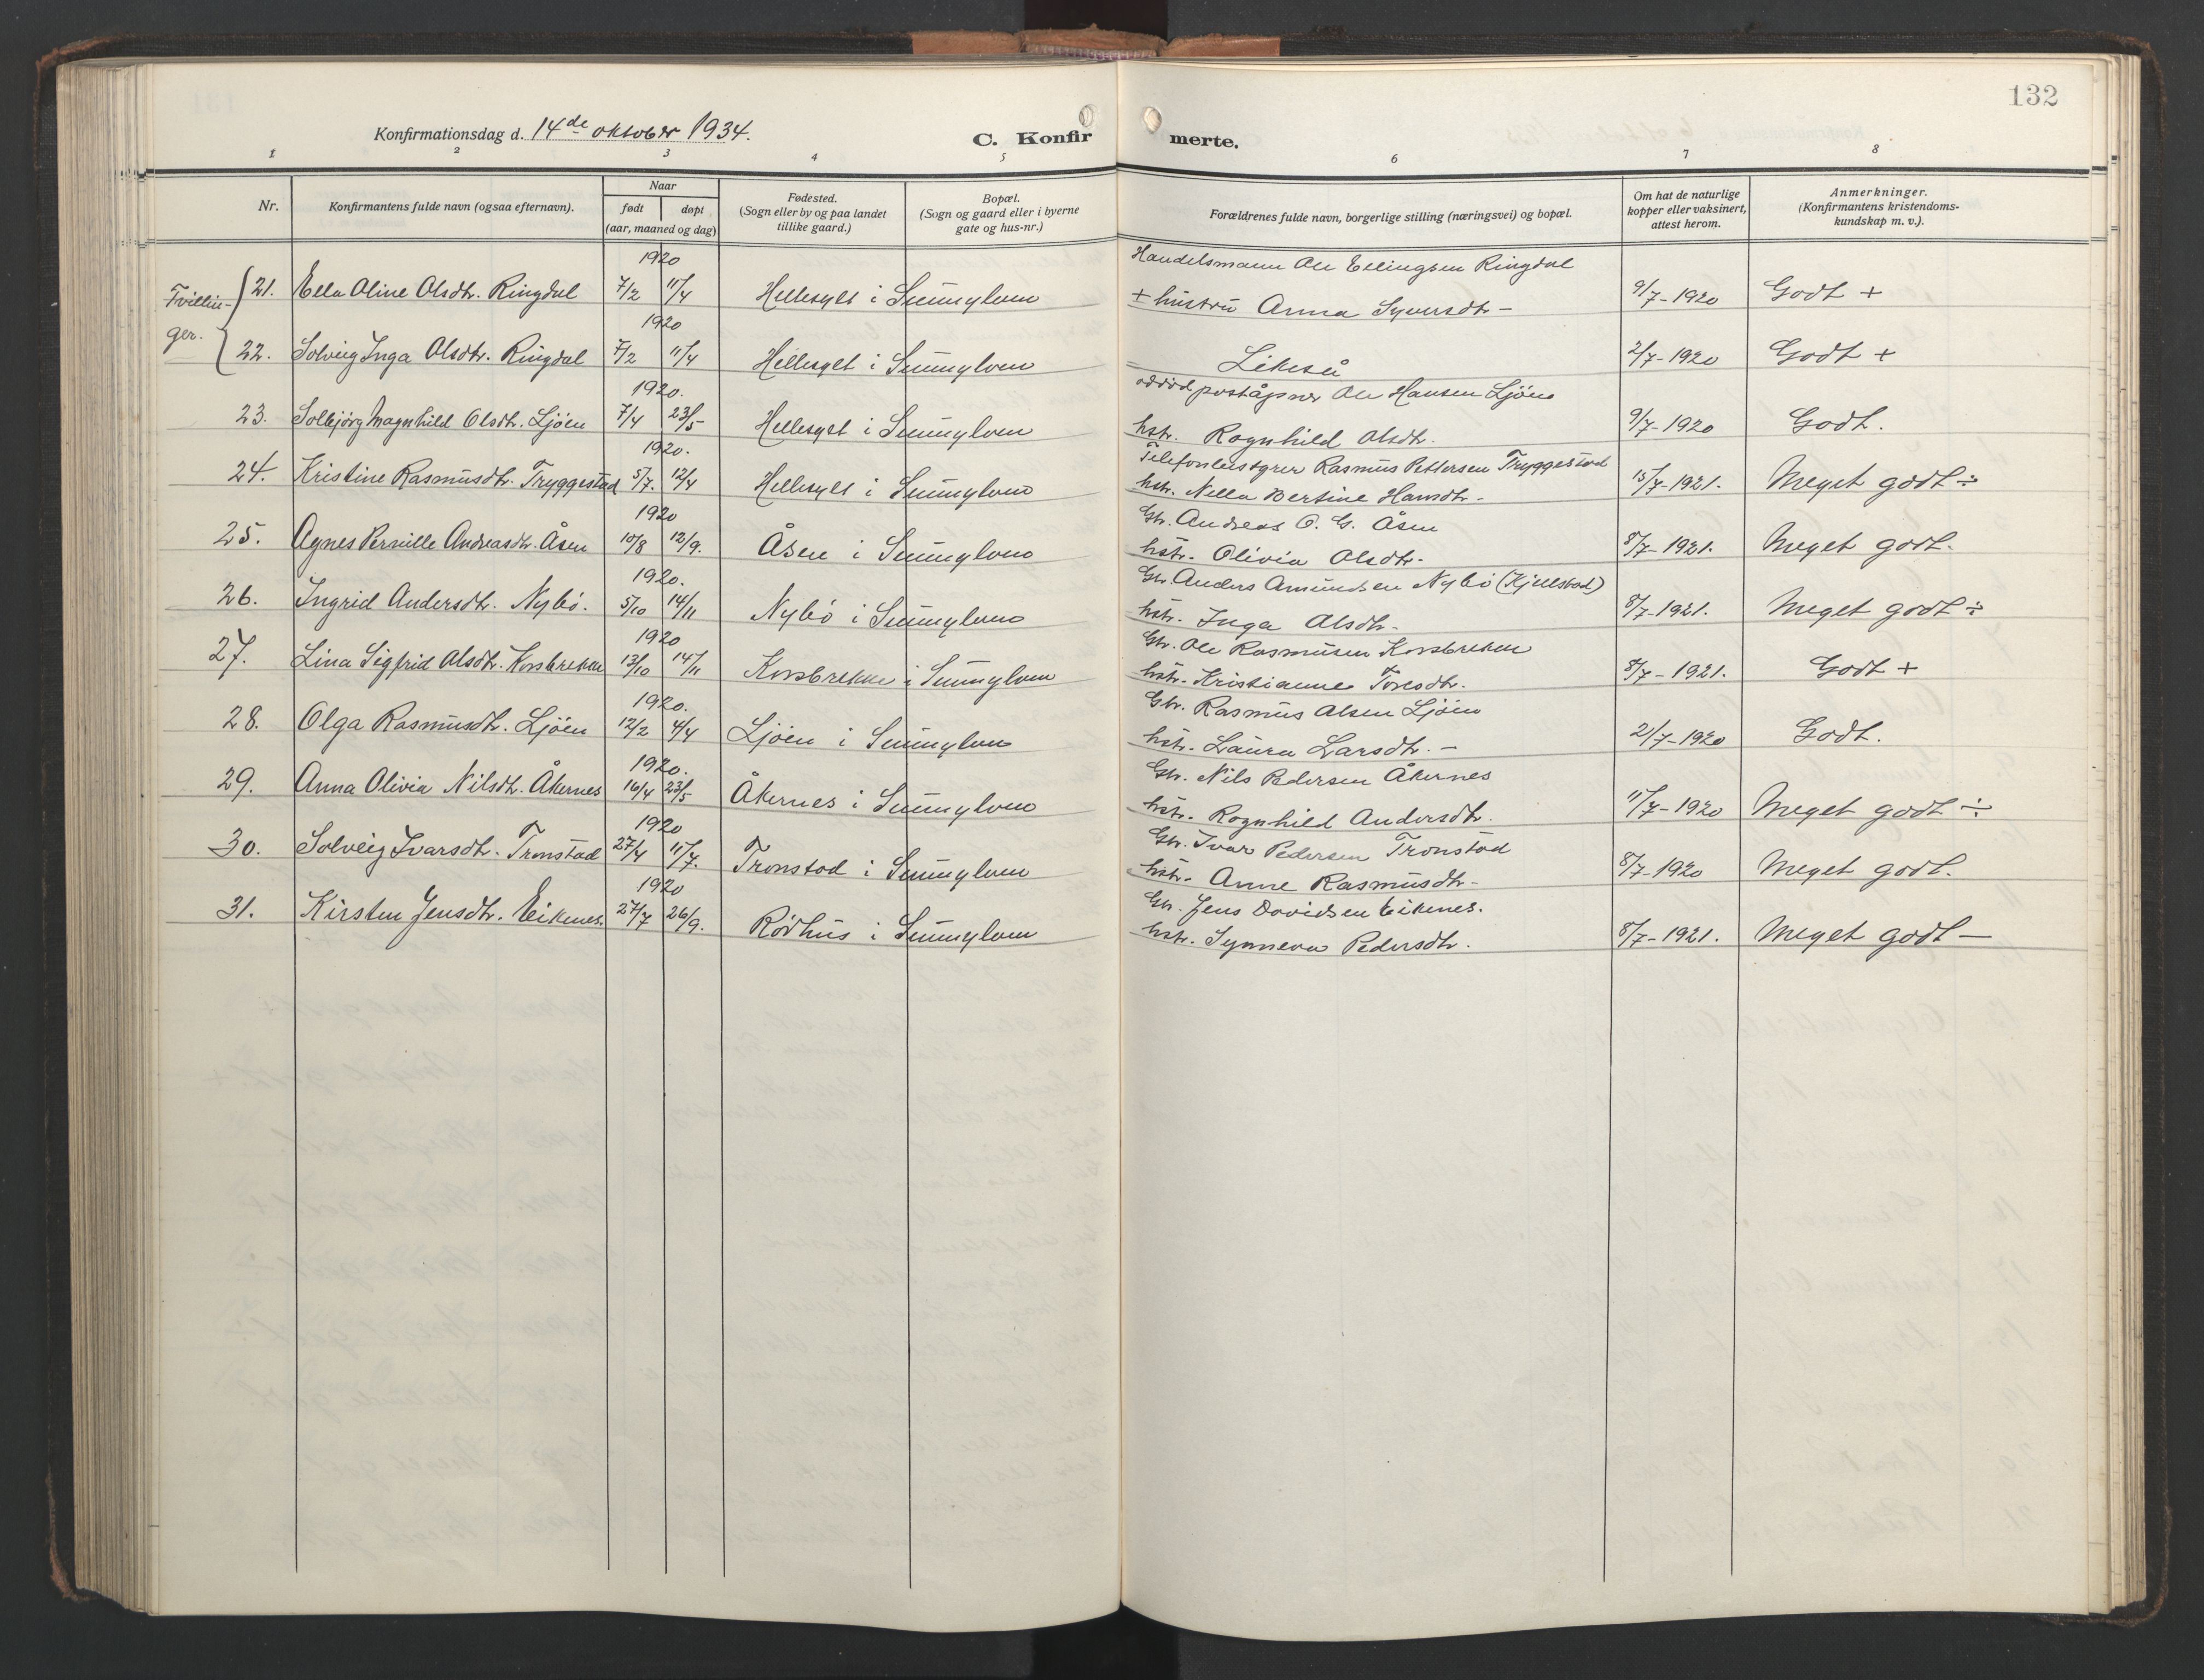 132
Konfirmationsdag d. 14de oktober 1934.
C. Konfir merte.
1 2 3 4 5 6 7 8
Nr.
Konfirmantens fulde navn (ogsaa efternavn).
Naar
født døpt
(aar, maaned og dag)
Fødested.
(Sogn eller by og paa landet
tillike gaard.)
Bopæl.
(Sogn og gaard eller i byerne
gate og hus-nr.)
Forældrenes fulde navn, borgerlige stilling (næringsvei) og bopæl.
Om hat de naturlige
kopper eller vaksinert,
attest herom.
Anmerkninger.
(Konfirmantens kristendoms-
kundskap m. v.).
Tvillin-
ger.
1920 Handelsmann Ole Ellingsen Ringdal
21. Ella Oline Olsdtr. Ringdal 7/2 11/4 Hellesylt i Sunnylven + hustru Anna Syversdtr – 9/7-1920 Godt +
1920
22. Solveig Inga Olsdtr. Ringdal 7/2 11/4 Hellesylt i Sunnylven = Likeså 2/7-1920 Godt +
1920. poståpner Ole Hansen Ljöen
23. Solbjörg Magnhild Olsdtr. Ljöen 7/4 23/5 Hellesylt i Sunnylven hstr. Ragnhild Olsdtr. 9/7-1920 Godt.
1920. Telefonbestyrer Rasmus Pettersen Tryggestad
24. Kristine Rasmusdtr. Tryggestad 5/7. 12/4 Hellesylt i Sunnylven hstr. Nella Bertine Hansdtr – 15/7-1921. Meget godt ÷
1920 Gbr. Andreas O. G. Åsen
25. Agnes Pernille Andreasdtr. Åsen 10/8 12/9. Åsen i Sunnylven hstr. Olivia Olsdtr. 8/7-1921. Meget godt.
1920. Gbr. Anders Amundsen Nybö (Kjellstad)
26. Ingrid Andersdtr. Nybö. 5/10 14/11 Nybö i Sunnylven hstr. Inga Olsdtr. 8/7-1921. Meget godt ÷
1920 Gbr. Ole Rasmusen Korsbrekke
27. Lina Sigfrid Olsdtr. Korsbrekke 13/10 14/11 Korsbrekke i Sunnylven hstr. Kristianne Toresdtr. 8/7-1921. Godt +
1920. Gbr. Rasmus Olsen Ljöen
28. Olga Rasmusdtr. Ljöen 12/2 4/4 Ljöen i Sunnylven hstr. Laura Larsdtr. – 2/7-1920 Godt.
1920. Gbr. Nils Pedersen Åkernes
29. Anna Olivia Nilsdtr. Åkernes 16/4 23/5 Åkernes i Sunnylven hstr. Ragnhild Andersdtr. 11/7-1920 Meget godt ÷
1920 Gbr. Ivar Pedersen Tronstad
30. Solveig Ivarsdtr. Tronstad 27/4 11/7. Tronstad i Sunnylven hstr. Anne Rasmusdtr. 8/7-1920 Meget godt.
1920 Gbr. Jens Davidsen Eikenes.
31. Kirsten Jensdtr. Eikenes. 27/7 26/9. Rödhus i Sunnylven hstr. Synneva Pedersdtr. 8/7-1921. Meget godt –